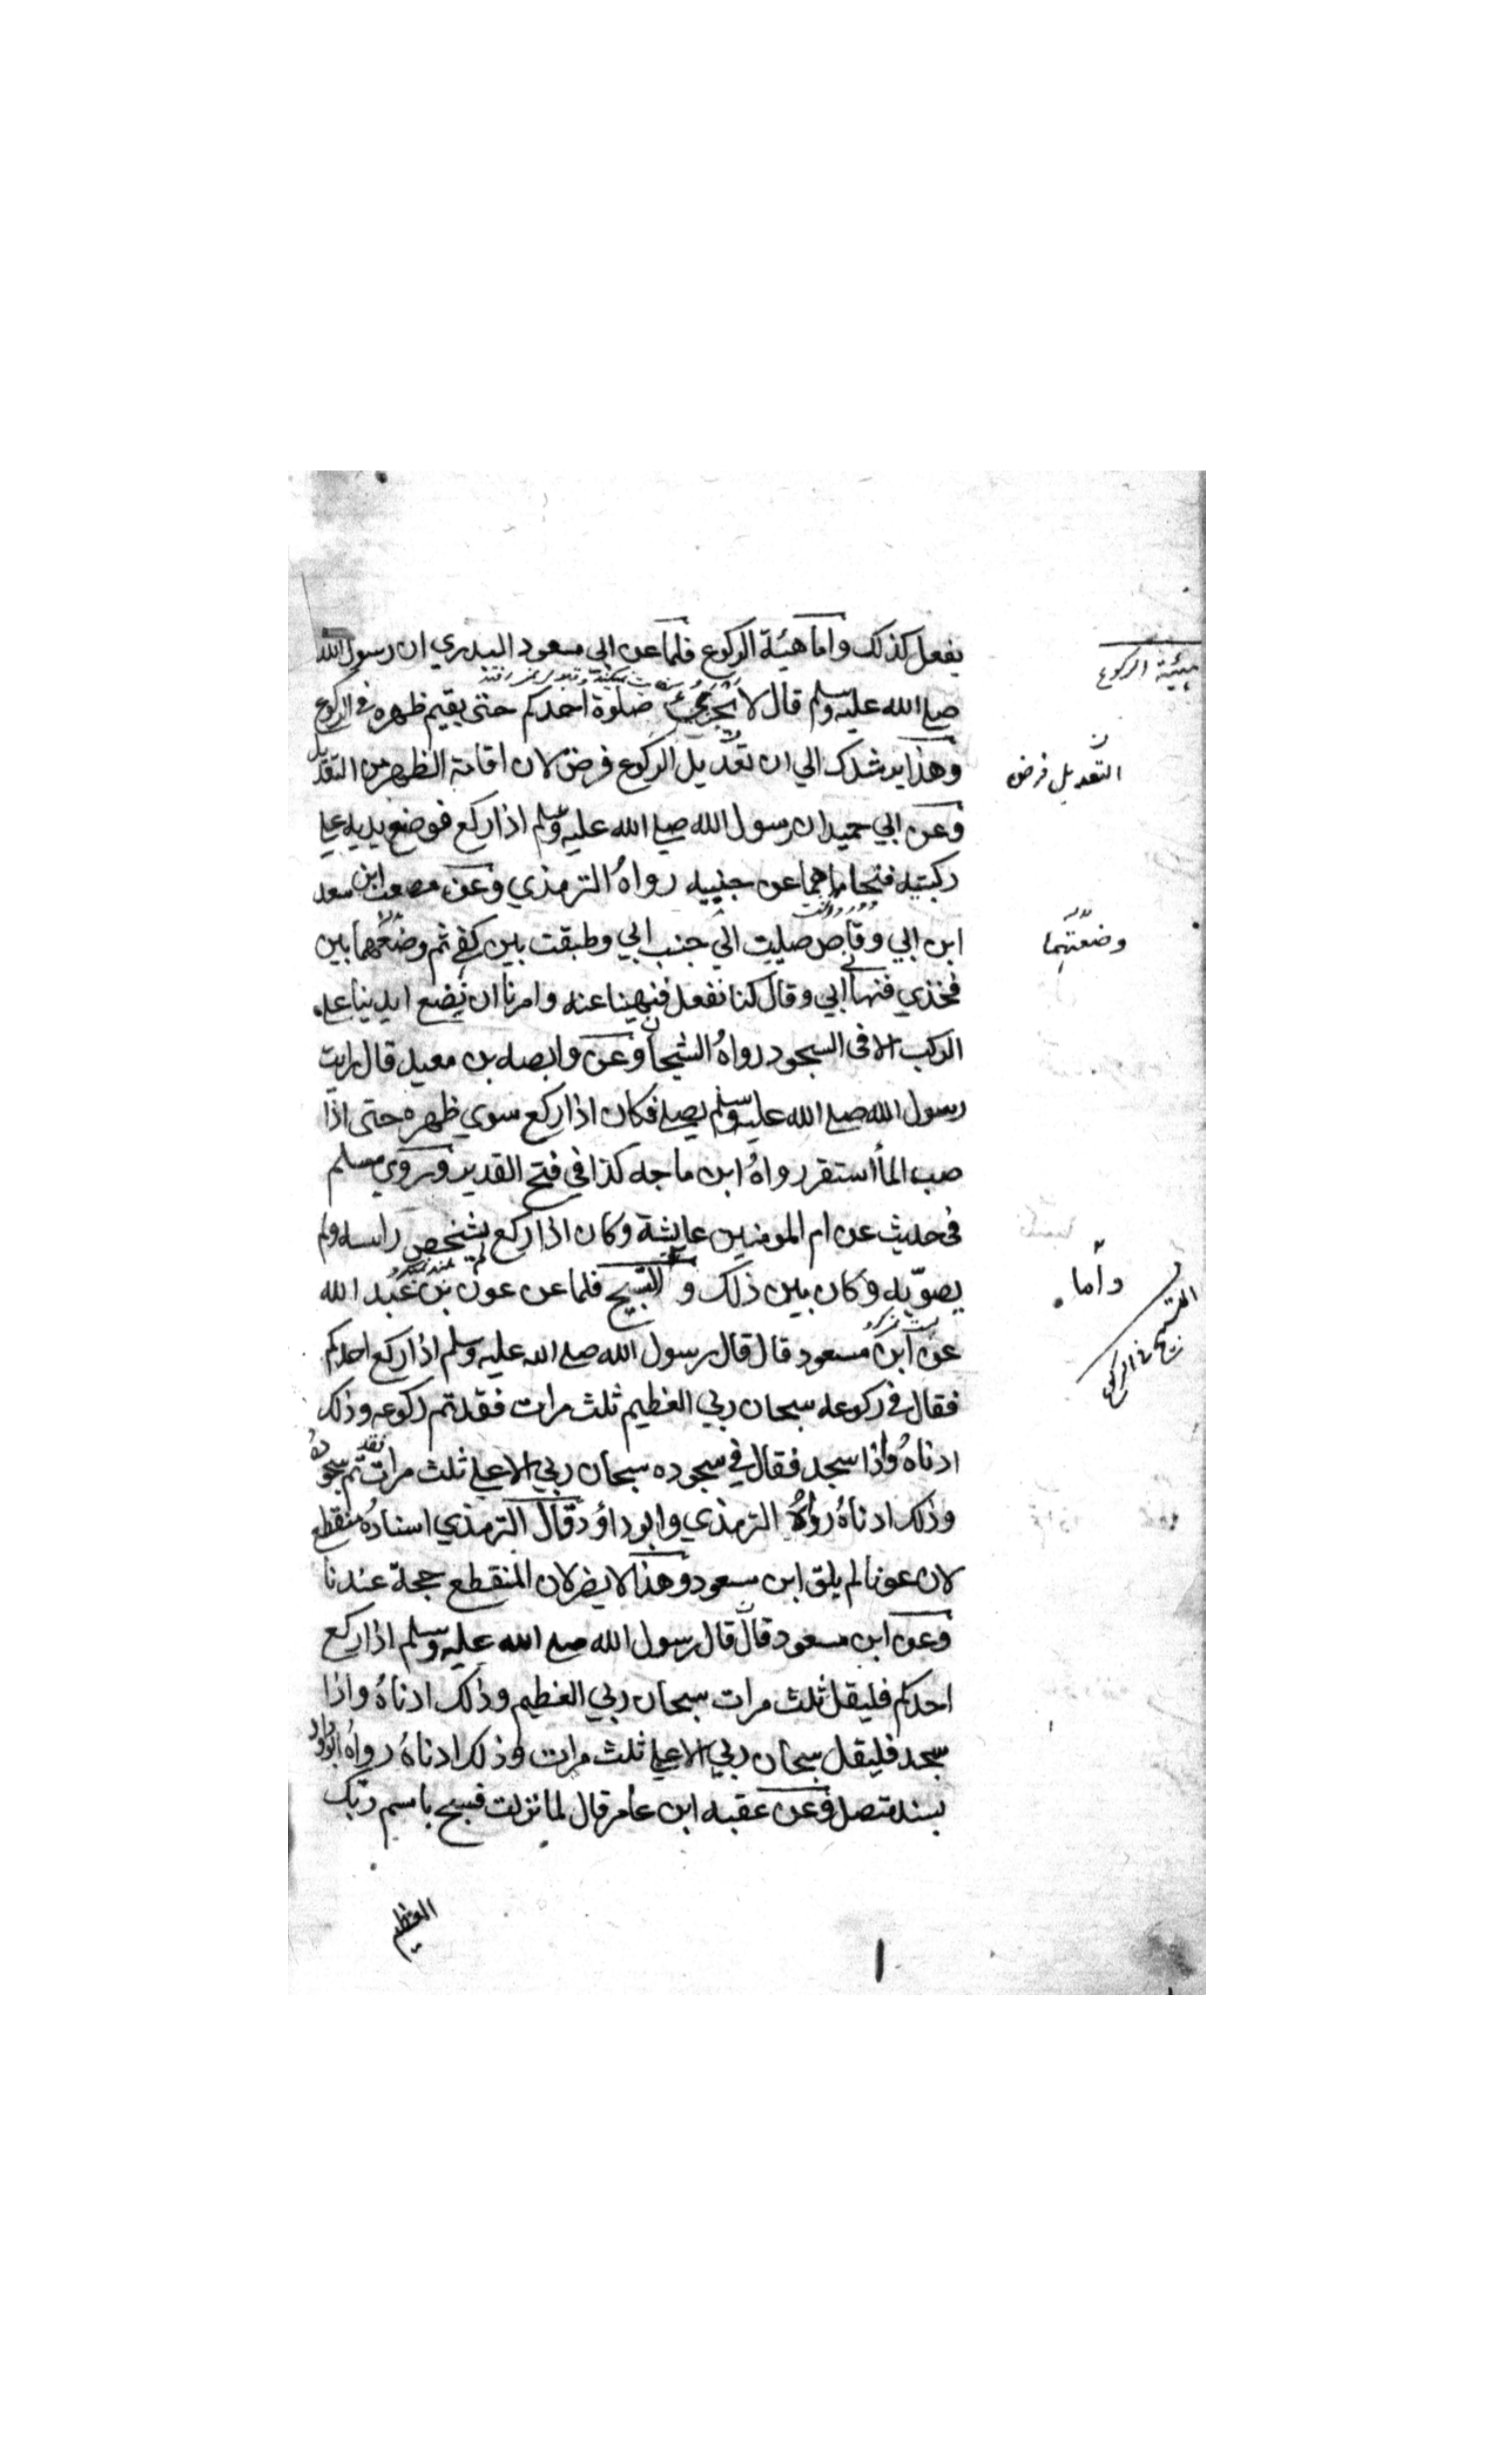 يفعل كذلك واما هيئة الركوع فلما عن ابي مسعود البدري ان رسول الله
هيئة الركوع
صلے الله عليه وسلم قال لا تجزئ صلوة احدكم حتى يقيم ظهره في الركوع
وهذا يرشدك الي ان تعديل الركوع فرض لان اقامة الظهر من التعديل
التعديل فرض
وعن ابي حميد ان رسول الله صلے الله عليه وسلم اذا ركع فوضع يديه علے
ركبتيه فنحاهما عن جنبيه رواهُ الترمذي وعن مصعب ابن سعد
ابن ابي وقاص صليت الي جنب ابي وطبقت بين كفے ثم وضعتهما بين
وضعتهما
فخذي فنهاني ابي وقال كنا نفعل فنهينا عنه وامرنا ان نضع ايدينا علے
الركب الا في السجود رواهُ الشيخان وعن وابصه بن معبد قال رايت
رسول الله صلے الله عليه وسلم يصلے فكان اذا ركع سوي ظهره حتى اذا
صب الماُ استقر رواهُ ابن ماجه كذا في فتح القدير وروي مسلم
في حديث عن ام المومنين عايشة وكان اذا ركع لم يشخص راسه ولم
يصوّبه وكان بين ذلك و التسبيح فلما عن عون بن عبد الله
واما
التسبيح في الركوع
عن ابن مسعود قال قال رسول الله صلے الله عليه وسلم اذا ركع احدكم
فقال في ركوعه سبحان ربي العظيم ثلث مرات فقد تم ركوعه وذلك
ادناهُ واذا سجد فقال في سجوده سبحان ربي الاعلے ثلث مرات فقد تم سجودهُ
وذلك ادناهُ رواهُ الترمذي وابو داؤد قال الترمذي اسنادُه منقطع
لان عونا لم يلق ابن مسعود وهذا لا يضر لان المنقطع حجة عندنا
وعن ابن مسعود قال قال رسول الله صلے الله عليه وسلم اذا ركع
احدكم فليقل ثلث مرات سبحان ربي العظيم وذلك ادناهُ واذا
سجد فليقل سبحان ربي الاعلے ثلث مرات وذلك ادناهُ رواهُ ابوداود
بسند متصل وعن عقبه ابن عامر قال لما نزلت فسبح باسم ربّك
العظيم